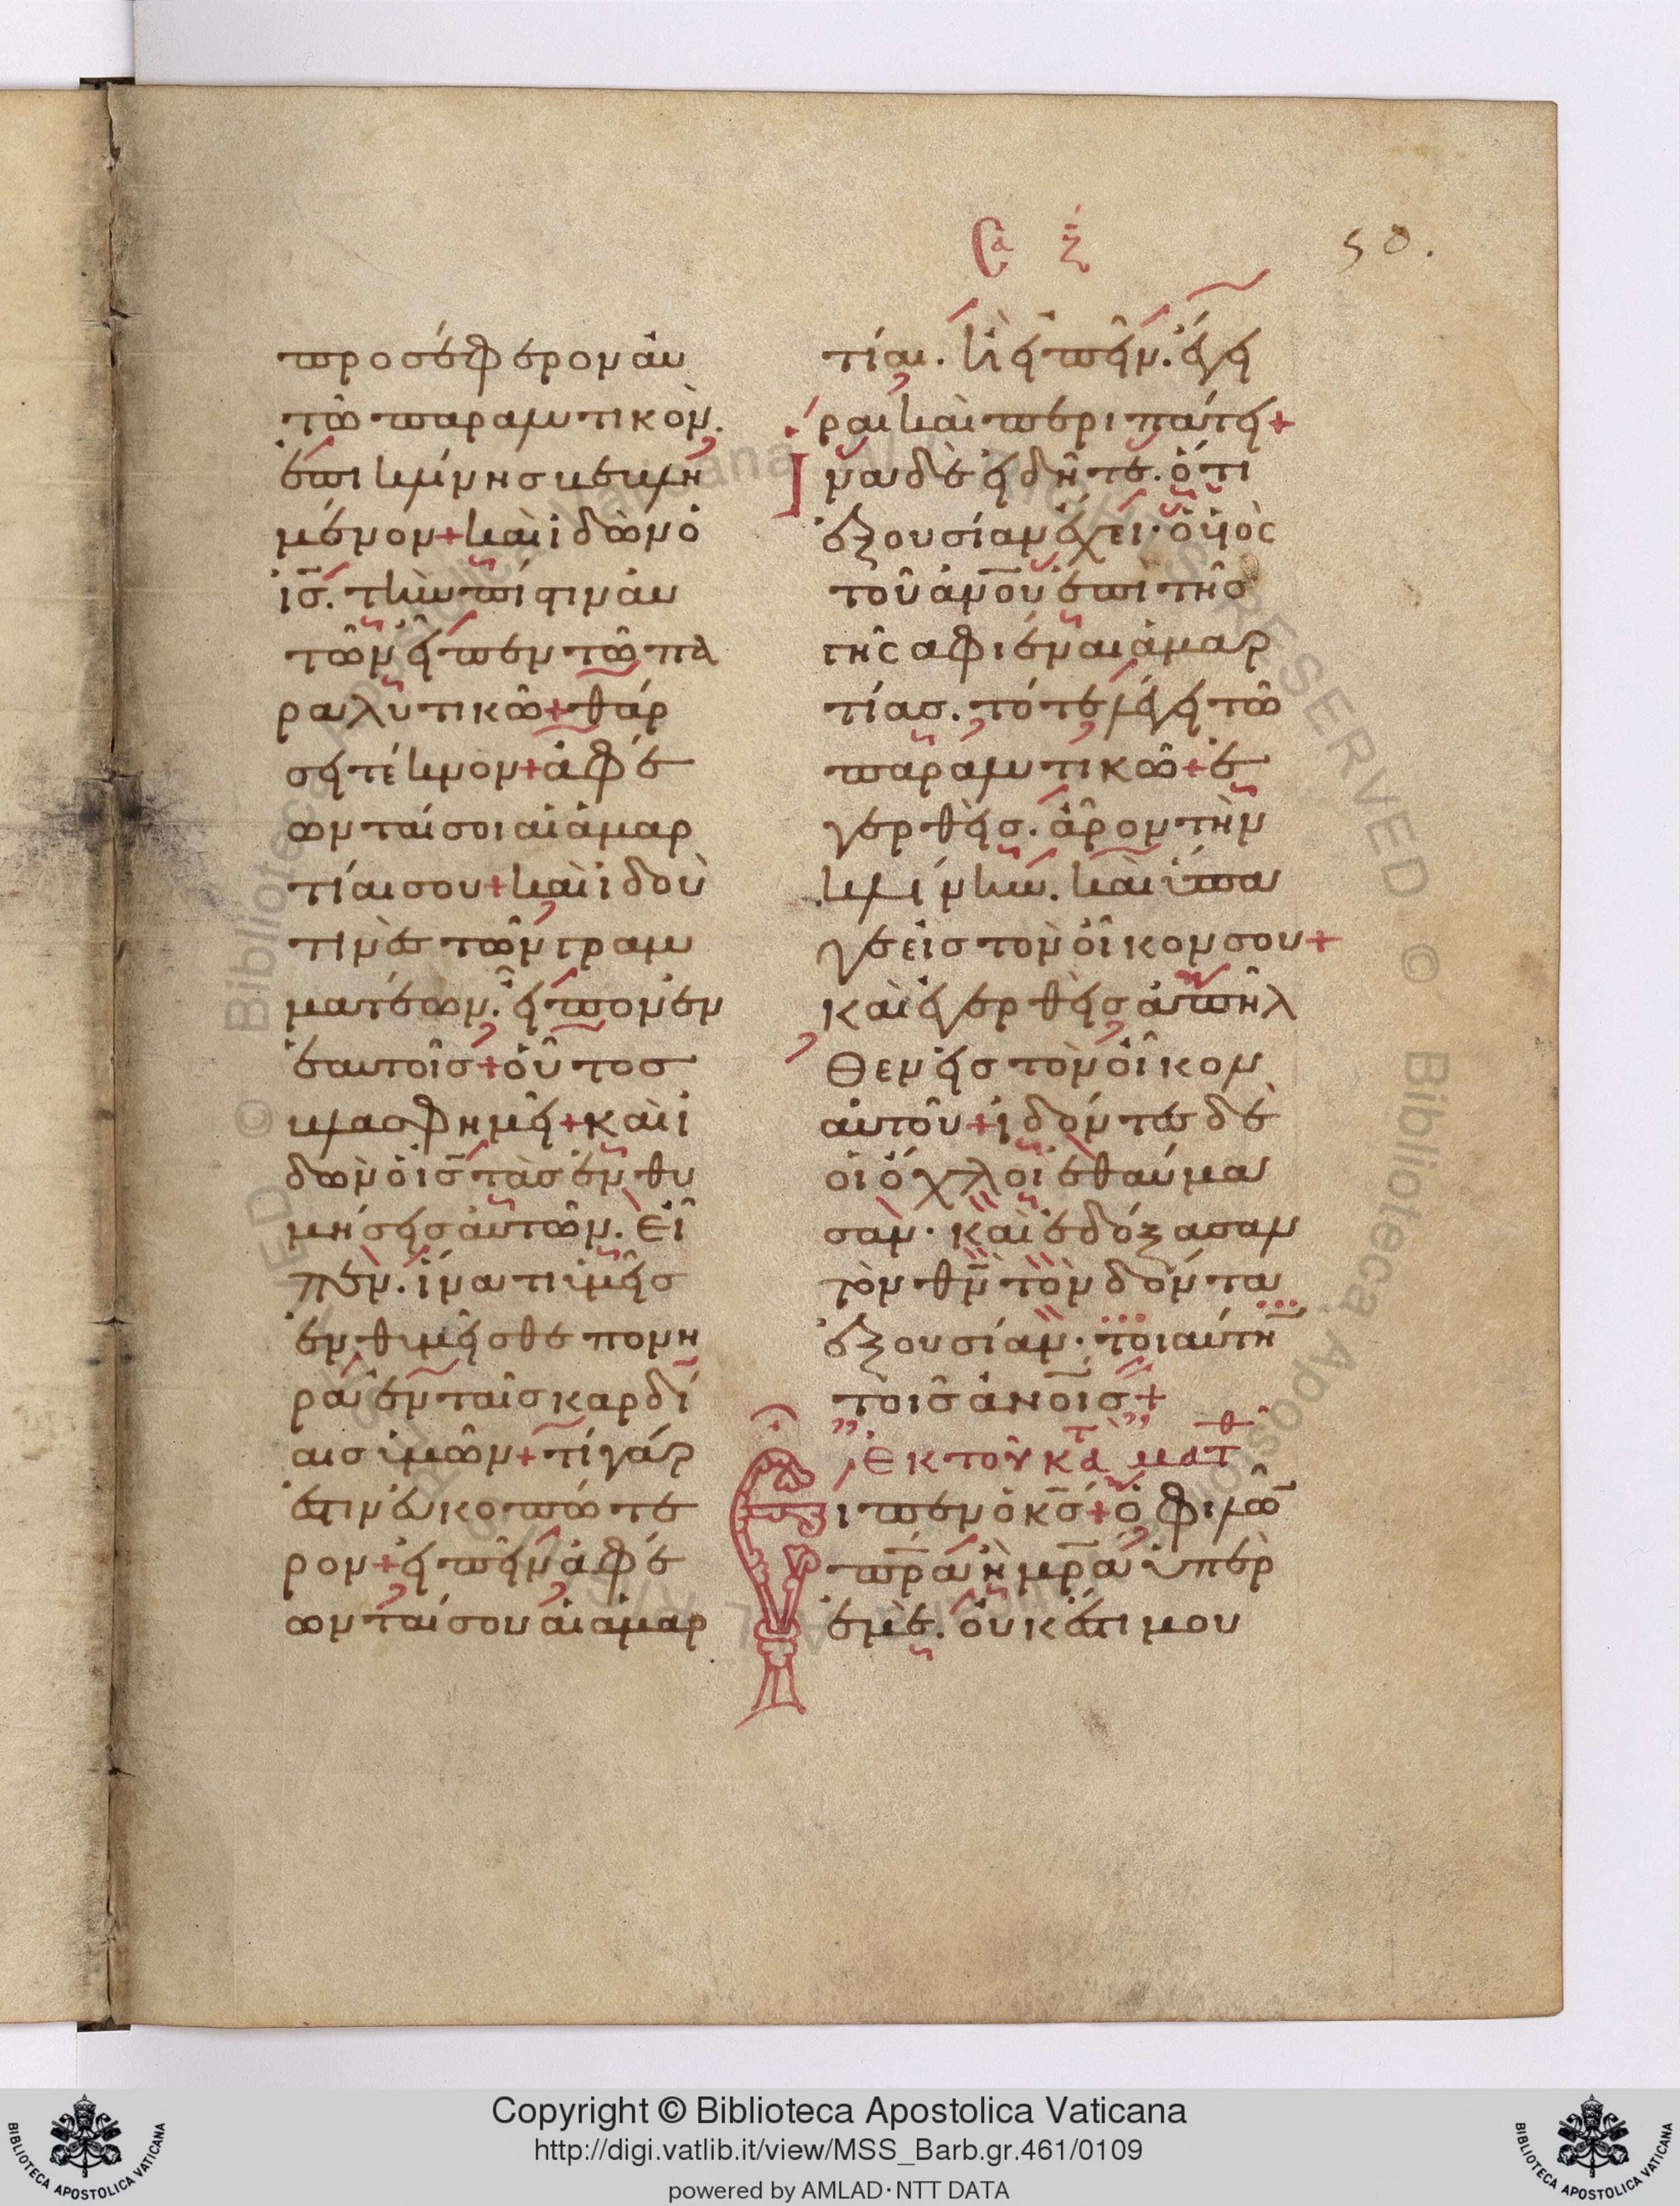 Σα ζ
50.
προσέφερον αυ
τῶ παραλυτικὸν.
ἐπι κλίνης βεβλη
μένον+καὶ ἰδὼν ὁ
ις. τὴν πίστιν αυ
τῶν εἶπεν τῶ πα
ραλυτικῶ+θάρ
σει τέκνον+ἀφέ
ωνταί σοι αἱ ἁμαρ
τίαι σου+καὶ ἰδοὺ
τινὲς τῶν γραμ
ματέων. εἶπον ἐν
ἑαυτοῖς+οὗτος
βλασφημεῖ+καὶ ἰ
δὼν ὁ ις τὰς ἐνθυ
μήσεις ἀυτῶν. εἶ
πεν. ἵνα τι ὑμεῖς
ἐνθυμεῖσθε πονη
ρὰ ἐν ταῖς καρδί
αις ὑμῶν+τί γάρ
ἐστιν εὐκοπώτε
ρον+εἰπεῖν ἀφέ
ωνταί σου ἁι ἁμαρ
τίαι. ἢ εἰπεῖν. ἔγει
ραι καὶ περιπάτει+
ἵνα δὲ εἰδῆτε. ὅτι
ἐξουσίαν έχει. ὁ υἱὸς
τοῦ ἀνου ἐπὶ τῆς
γῆς αφιέναι ἁμαρ
τίας. τότε λέγει τῶ
παραλυτικῶ+ἐ
γερθεὶς. ἆρον τὴν
κλίνην. καὶ ὕπα
γε εἰς τὸν οἶκον σου+
καὶ ἐγερθεὶς ἀπῆλ
θεν εἰς τὸν οἶκον
αὐτοῦ+ἰδόντες δὲ
οἱ ὄχλοι ἐθαύμα
σαν. καὶ ἐδόξασαν
τὸν θν τὸν δόντα
ἐξουσίαν. τοιαύτη
τοις ἀνοις+
Ἐκ τοῦ κατὰ ματθ
Εἶπεν ὁ κς+ὁ φιλῶ
πρα ἢ μρα ὑπὲρ
ἐμὲ. οὐκ ἔστι μου
Copyright © Biblioteca Apostolica Vaticana
http://digi.vatlib.it/view/MSS_Barb.gr.461/0109
powered by AMLAD·NTT DATA
BIBLIOTECA APOSTOLICA VATICANA
BIBLIOTECA APOSTOLICA VATICANA